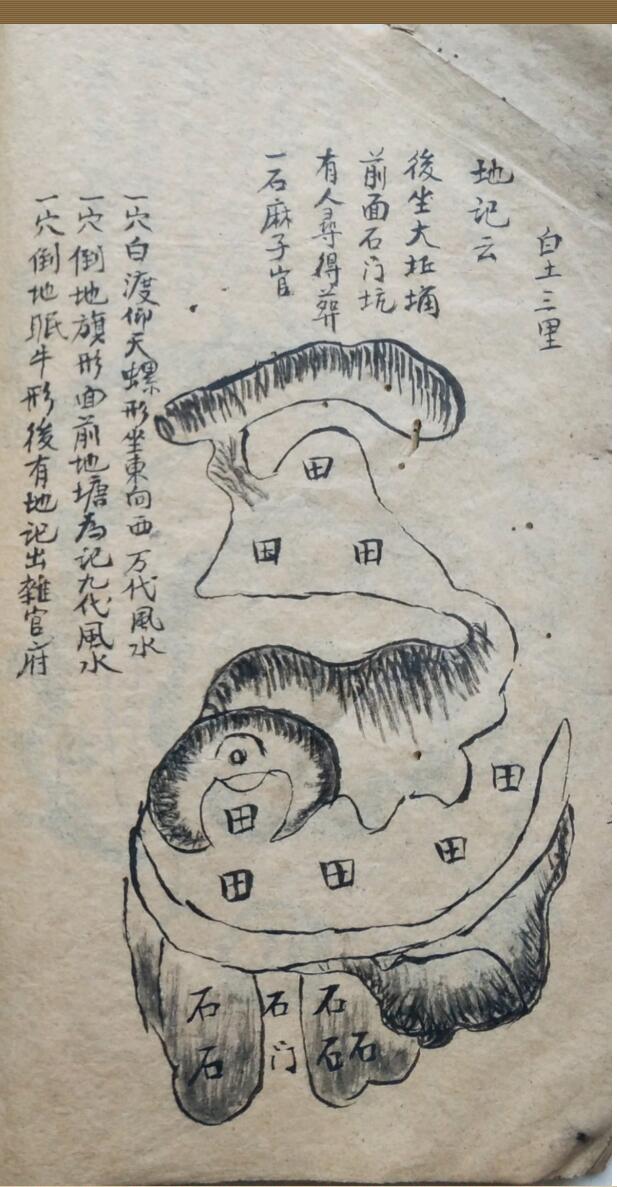 白土三里
地记云
後坐大坵埇
前面石门坑
有人尋得葬
一石麻子官
一穴白渡仰天螺形坐東向西万代風水
一穴倒地旗形面前地塘為记九代風水
一穴倒地眠牛形後有地记出雜官府
田
田 田
田
田
田 田 田
石 石 石
石 门 石 石